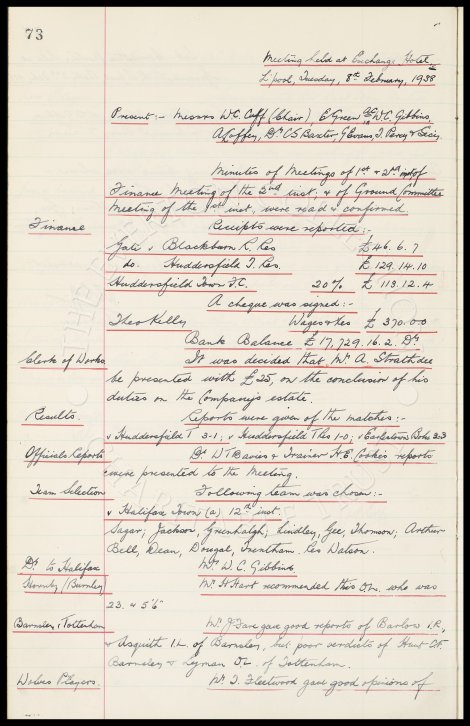 73
Meeting held at Exchange Hotel
L'pool, Tuesday, 8th February, 1938
Present:- Messrs W.C. Cuff (Chair), E. Green W.C. Gibbins,
A. Coffey, Dr C.S. Baxter, G. Evans, J. Percy & Secy.
Minutes of Meetings of 1st & 2nd inst of
Finance Meeting of the 2nd inst. & of Ground Committee
Meeting of the 1st inst. were read & confirmed.
Finance Receipts were reported:-
Gate v Blackburn R. Res £46. 6. 7
do. Huddersfield T. Res. £129. 14. 10
Huddersfield Town F.C. 20% £113. 12. 4
A cheque was signed:-
Theo Kelly Wages & c £370. 0 0
Bank Balance £17,729. 16. 2. Dr.
Clerk of Works. It was decided that Mr A. Strathdee
be presented with £25, on the conclusion of his
duties on the Company's estate.
Results. Reports were given of the matches:-
v Huddersfield T 3-1; v Huddersfield T Res 1-0; v Earlestown Boho 3-3
Officials Reports Dr. W.T. Davies & Trainer H.E. Cooke's reports
were presented to the Meeting.
Team Selection Following team was chosen:-
v Halifax Town (a) 12th inst.
Sagar, Jackson, Greenhalgh; Lindley, Gee, Thomson; Arthur
Bell, Dean, Dougal, Trentham. Res Watson.
Dr. to Halifax Mr. W.C. Gibbins
Hornby (Burnley Mr. H. Hart recommended this O.L. who was
23. & 5' 6"
Barnsley & Tottenham Mr. J. Fare gave good reports of Barlow I.R.,
& Asquith I.L. of Barnsley, but poor verdicts of Hunt C.F.
& Lyman O.L. of Tottenham.
Wolves Players. Mr. J. Fleetwood gave good opinions of